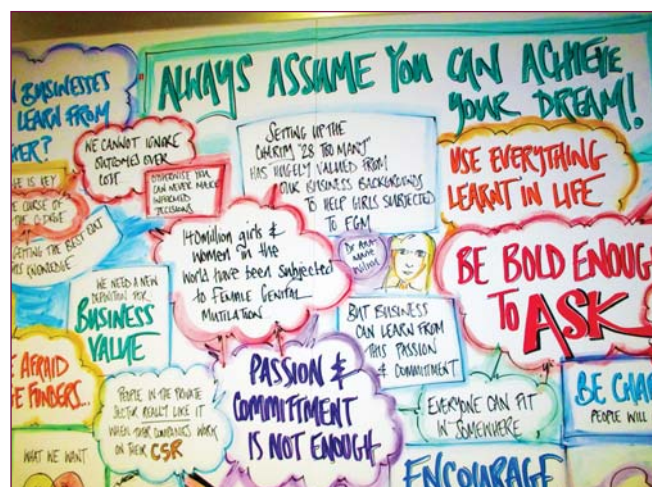 ALWAYS ASSUME YOU CAN ACHIEVE
YOUR DREAM!
BUSINESSES
LEARN FROM
WE CANNOT IGNORE
OUTCOMES OVER
COST
OTHERWISE YOU
CAN NEVER MAKE
INFORMED
DECISIONS
SETTING UP THE
CHARITY "28 TOO MANY"
HAS HUGELY VALUED FROM
OUR BUSINESS BACKGROUNDS
TO HELP GIRLS SUBJECTED
TO FGM
USE EVERYTHING
LEARNT IN LIFE
IS KEY
CURSE OF
GETTING THE BEST OUT
KNOWLEDGE
140 million girls &
women in the
world have been subjected
to FEMALE GENITAL
MUTILATION
Dr Ann-
Marie
Wilson
BE BOLD ENOUGH
TO ASK
WE NEED A NEW
DEFINITION FOR
BUSINESS
VALUE
BUT BUSINESS
CAN LEARN FROM
THIS PASSION
& COMMITMENT
AFRAID
FUNDERS...
PEOPLE IN THE PRIVATE
SECTOR REALLY LIKE IT
WHEN THEIR COMPANIES WORK
ON THEIR CSR
PASSION &
COMMITTMENT
IS NOT ENOUGH
EVERYONE CAN FIT
IN SOMEWHERE
BE
PEOPLE WILL
WHAT WE WANT
ENCOURAGE